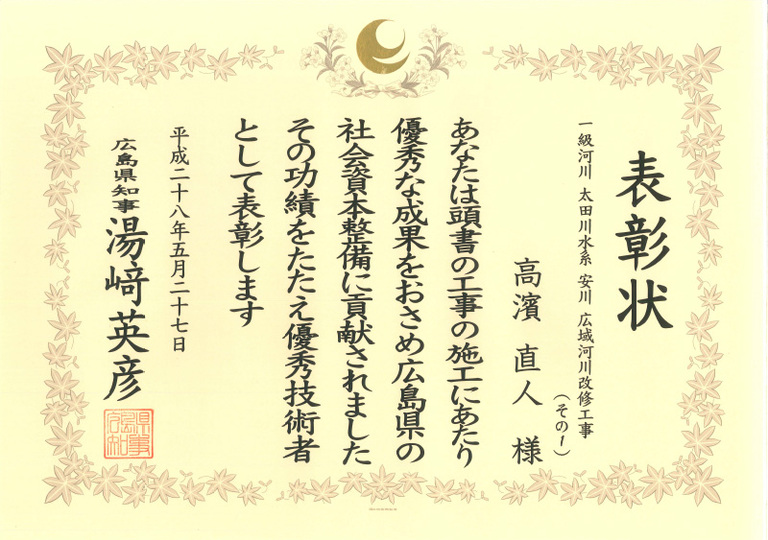 表彰状
一級河川 太田川水系 安川 広域河川改修工事
(その1)
高濱 直人 様
あなたは頭書の工事の施工にあたり
優秀な成果をおさめ広島県の
社会資本整備に貢献されました
その功績をたたえ優秀技術者
として表彰します
平成二十八年五月二十七日
広島県知事 湯﨑英彦
広島県知事